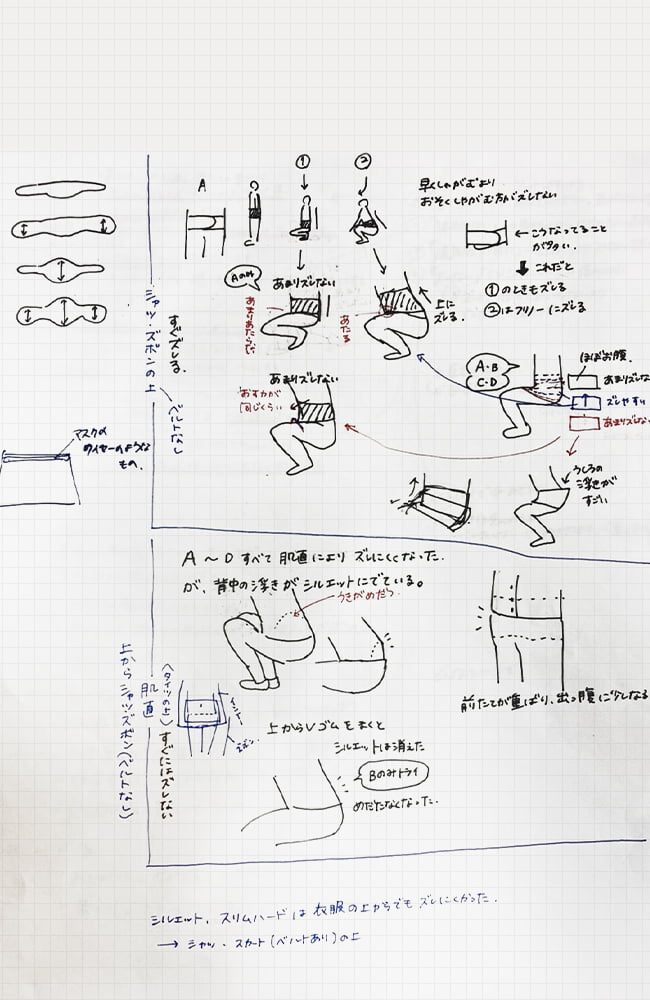 A
①
②
早くしゃがむより
おそくしゃがむ方がズレない
←こうなってること
が多い。
これだと
①のときもズレる
②はフツーにズレる
Aのみ
あまりズレない
あまりあたらない
あたる
上に
ズレる。
シャツ・ズボンの上
すぐズレる。
ベルトなし
あまりズレない
おすカが
同じくらい
A・B
C・D
ほぼお腹。
あまりズレな
ズレやすい
あまりズレない
うしろの
浮きが
すごい
マスクの
ワイヤーのような
もの。
A〜Dすべて肌直によりズレにくくなった。
が、背中の浮きがシルエットにでている。
うきがめだつ
上からシャツズボン(ベルトなし)
肌直
(タイツの上)
すぐにはズレない
ズボン
前たてが重ばり、出っ腹に少しなる
上からVゴムをまくと
シルエットは消えた
Bのみトライ
めだたなくなった。
シルエット、スリムハードは衣服の上からでもズレにくかった。
→シャツ・スカート(ベルトあり)の上